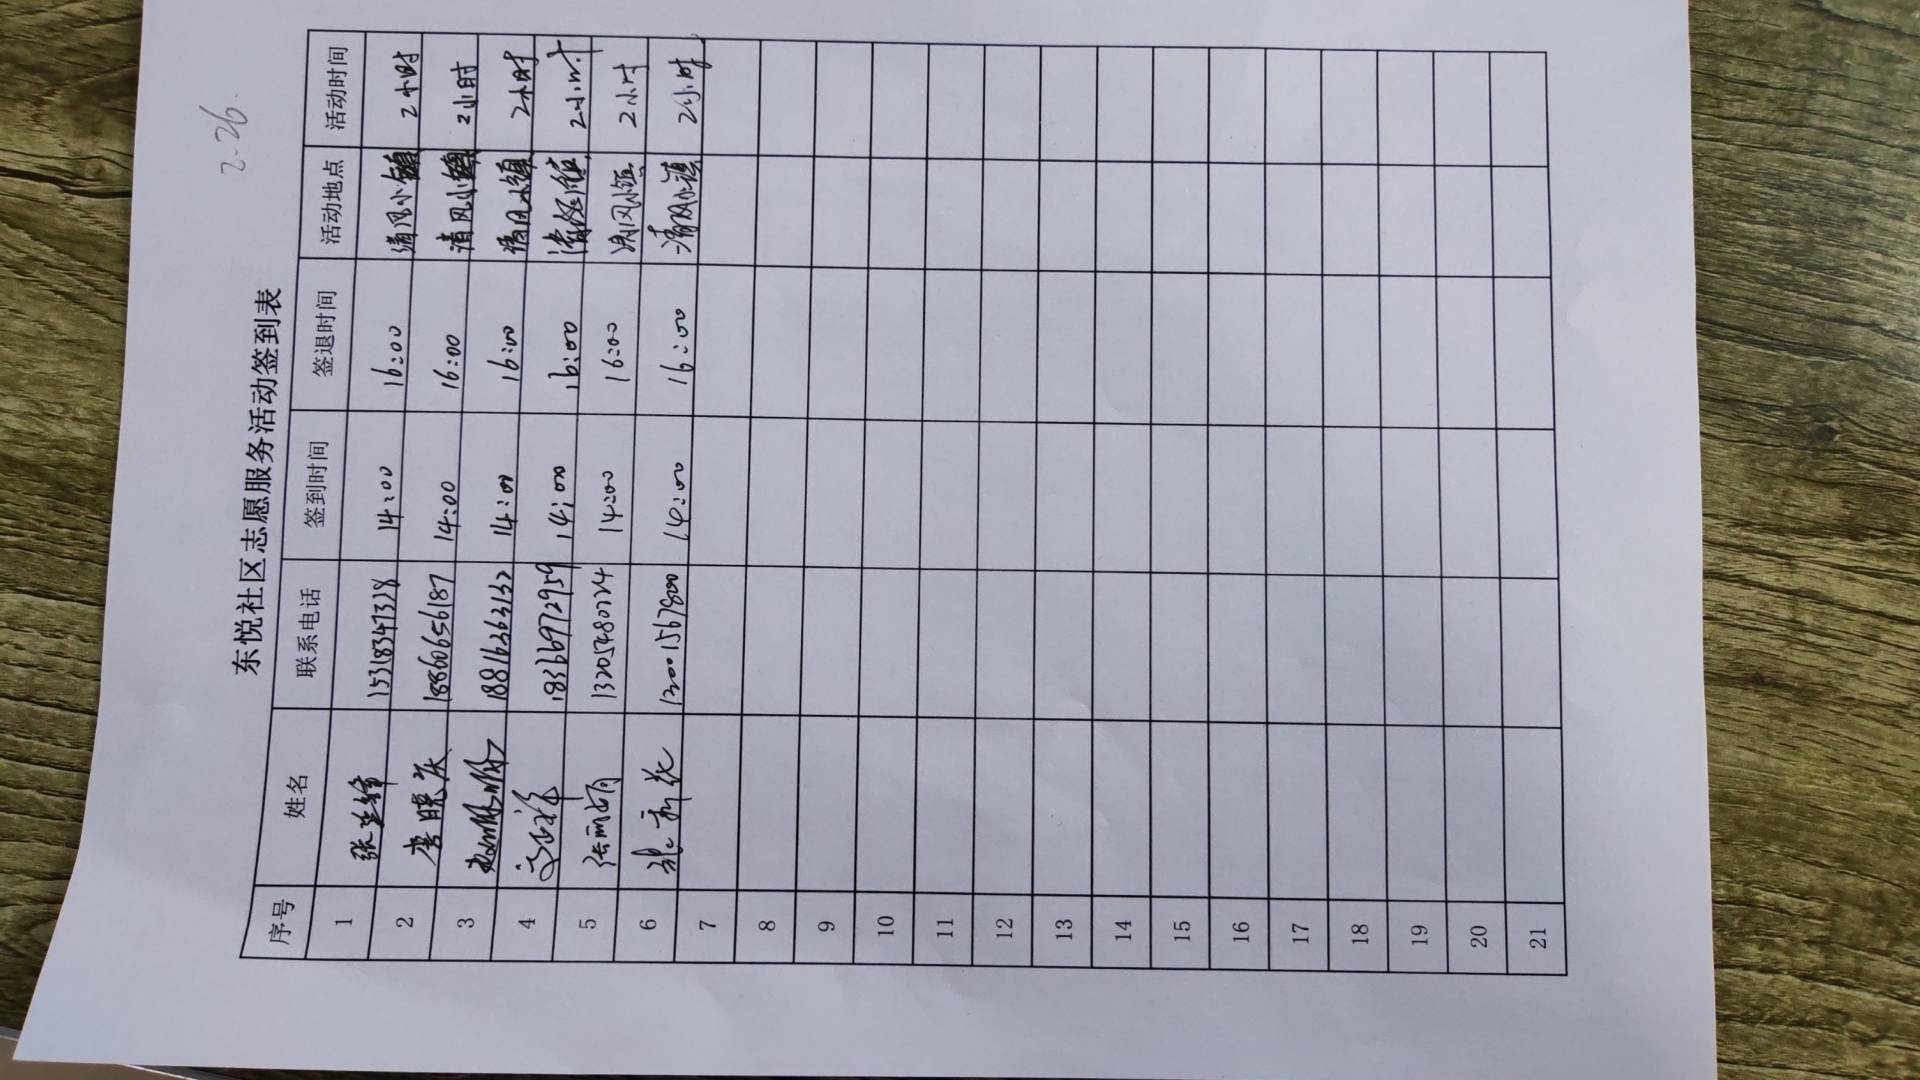 2-26.
东悦社区志愿服务活动签到表
序号 姓名 联系电话 签到时间 签退时间 活动地点 活动时间
1 15318347328 14:00 16:00 清风小镇 2小时
2 唐晓庆 18660656187 14:00 16:00 清风小镇 2小时
3 18816363132 14:00 16:00 清风小镇 2小时
4 18366972959 14:00 16:00 清风小镇 2小时
5 张丽娟 13205480724 14:00 16:00 清风小镇 2小时
6 14:00 16:00 清风小镇 2小时
7
8
9
10
11
12
13
14
15
16
17
18
19
20
21